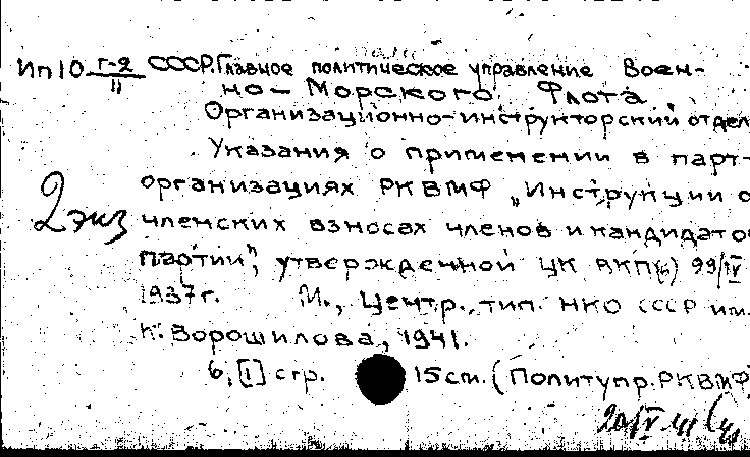 Ип10 г-2/II СССР. Главное политическое управление Воен-
но-Морского Флота.
Организационно-инструкторский отдел
Указания о применении в парт-
организациях РКВМФ „Инструкции о
2 экз
членских взносах членов и кандидатов
партии", утвержденной ЦК ВКП(б)
1937г. М., Центр. тип. НКО СССР им.
К. Ворошилова, 1941.
6, [1] стр. 15 см. (Политупр. РКВМФ
20/IV 41